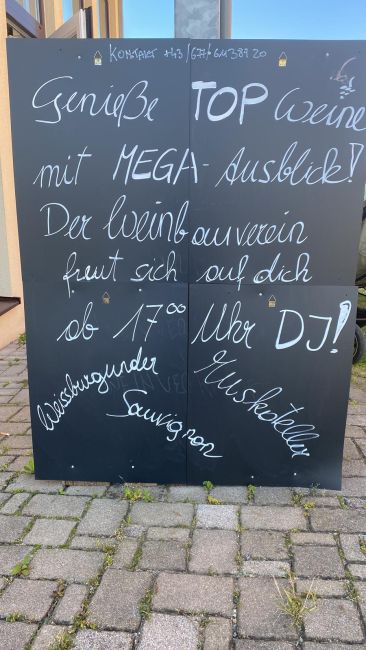 Kontakt +43/677/61138920
Genieße TOP Weine
mit MEGA-Ausblick!
Der Weinbauverein
freut sich auf dich
ab 17⁰⁰ Uhr DJ!
Weissburgunder
Sauvignon
Muskateller